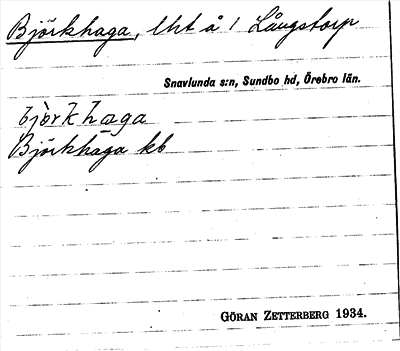 Björkhaga, lht å 1 Långstorp
Snavlunda s:n, Sundbo hd, Örebro län.
björkhaga
Björkhaga kb
GÖRAN ZETTERBERG 1934.